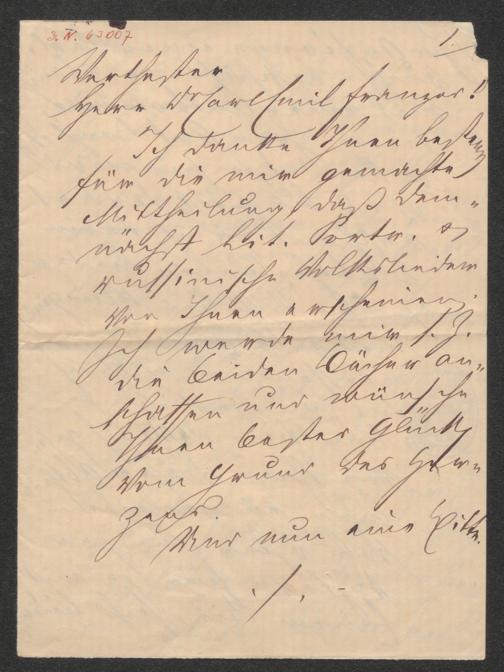 J. N. 63007
1.
Werthester
Herr Dr Carl Emil Franzos!
Ich danke Ihnen bestens
für die mir gemachte
Mittheilung daß dem-
nächst Lit. Portr. &
russinische Volkslieder
von Ihnen erscheinen.
Ich werde mir s. Z.
die beiden Bücher an-
schaffen und wünsche
Ihnen bestes Glück
vom Grund des Her-
zens
Und nun eine Bitte.
./.